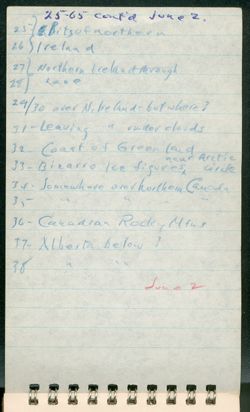 25-65 cont'd June 2.
25 } & Bits of northern
26 } Ireland
27 } Northern Ireland through
28 } haze
29/30 over N. Ireland - but where?
31 - Leaving " under clouds
32 - Coast of Greenland
near Arctic
33 - Bizarro Ice figures, circle
34 - Somewhere over Northern Canada
35 " " "
36 - Canadian Rocky Mtns
37 - Alberta below?
38 " "
June 2